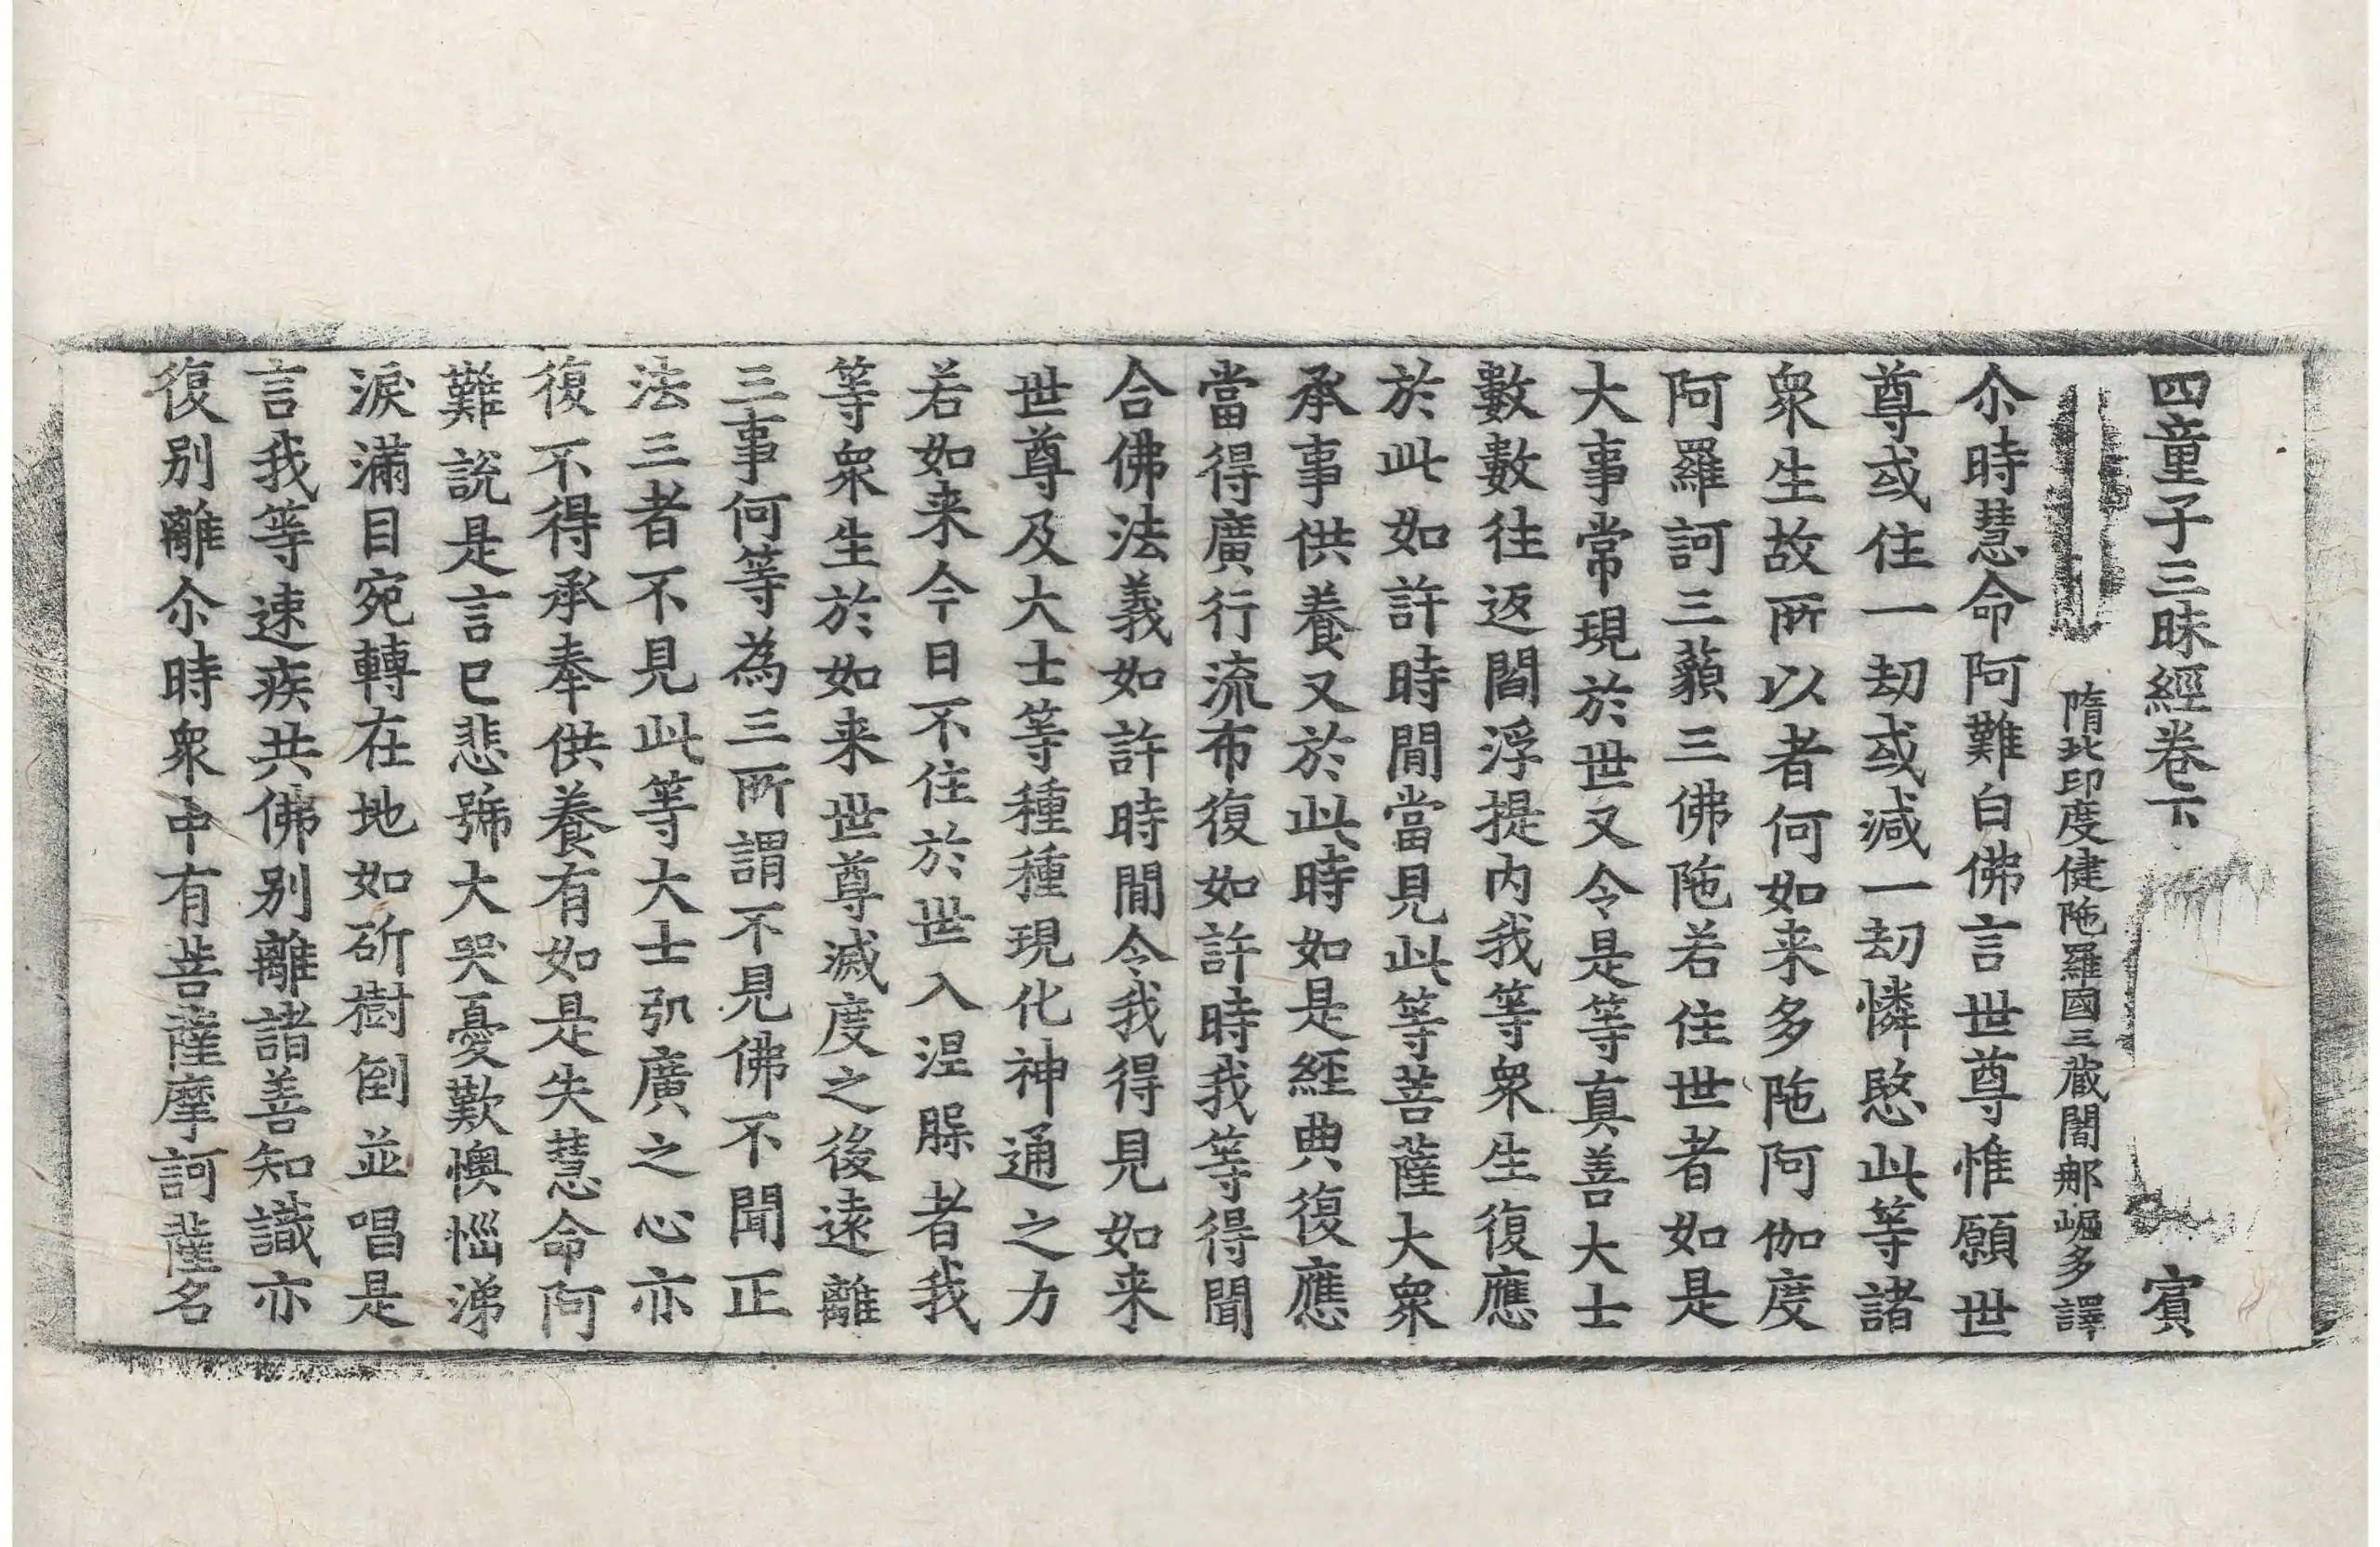 四童子三昧經卷下 賓
隋北印度健陁羅國三藏闍那崛多譯
尒時慧命阿難白佛言世尊惟願世
尊或住一劫或減一劫憐愍此等諸
衆生故所以者何如来多陁阿伽度
阿羅訶三藐三佛陁若住世者如是
大事常現於世又令是等真善大士
數數往返閻浮提内我等衆生復應
於此如許時閒當見此等菩薩大衆
承事供養又於此時如是經典復應
當得廣行流布復如許時我等得聞
合佛法義如許時閒令我得見如来
世尊及大士等種種現化神通之力
若如来今日不住於世入涅槃者我
等衆生於如来世尊滅度之後遠離
三事何等為三所謂不見佛不聞正
法三者不見此等大士弘廣之心亦
復不得承奉供養有如是失慧命阿
難說是言已悲號大哭憂歎懊惱涕
淚滿目宛轉在地如斫樹倒並唱是
言我等速疾共佛別離諸善知識亦
復別離尒時衆中有菩薩摩訶薩名